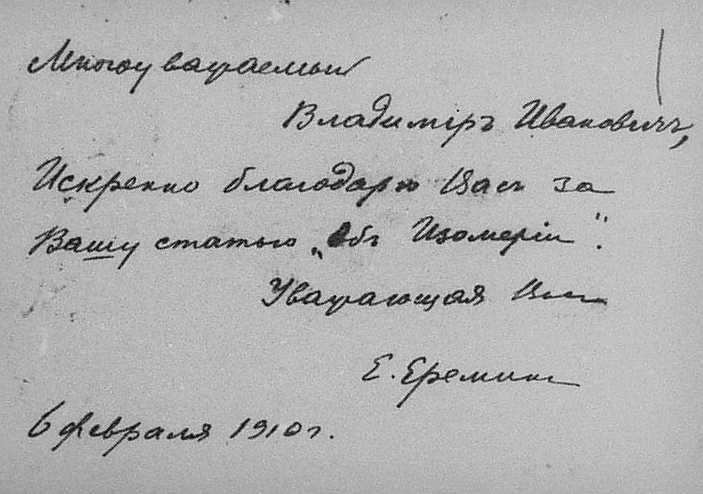 Многоуважаемый
Владимiръ Ивановичъ,
Искренно благодарю Васъ за
Вашу статью „Объ Изомерiи“.
Уважающая Васъ
Е. Еремина
6 февраля 1910 г.